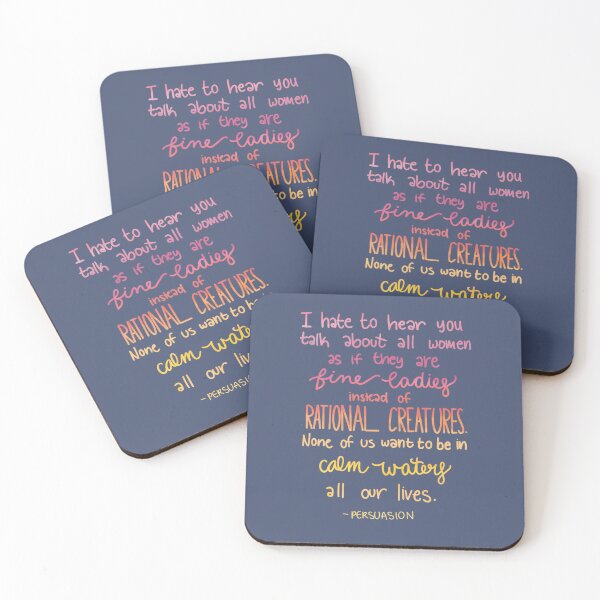 I hate to hear you
talk about all women
as if they are
fine ladies
instead of
RATIONAL CREATURES.
I hate to hear you
talk about all women
as if they are
fine ladies
instead of
RATIONAL CREATURES.
None of us want to be in
calm waters
I hate to hear you
talk about all women
as if they are
fine ladies
instead of
RATIONAL CREATURES.
None of us want to be
calm waters
all our lives.
~PERSUASION
I hate to hear you
talk about all women
as if they are
fine ladies
instead of
RATIONAL CREATURES.
None of us want to be in
calm waters
all our lives.
~PERSUASION